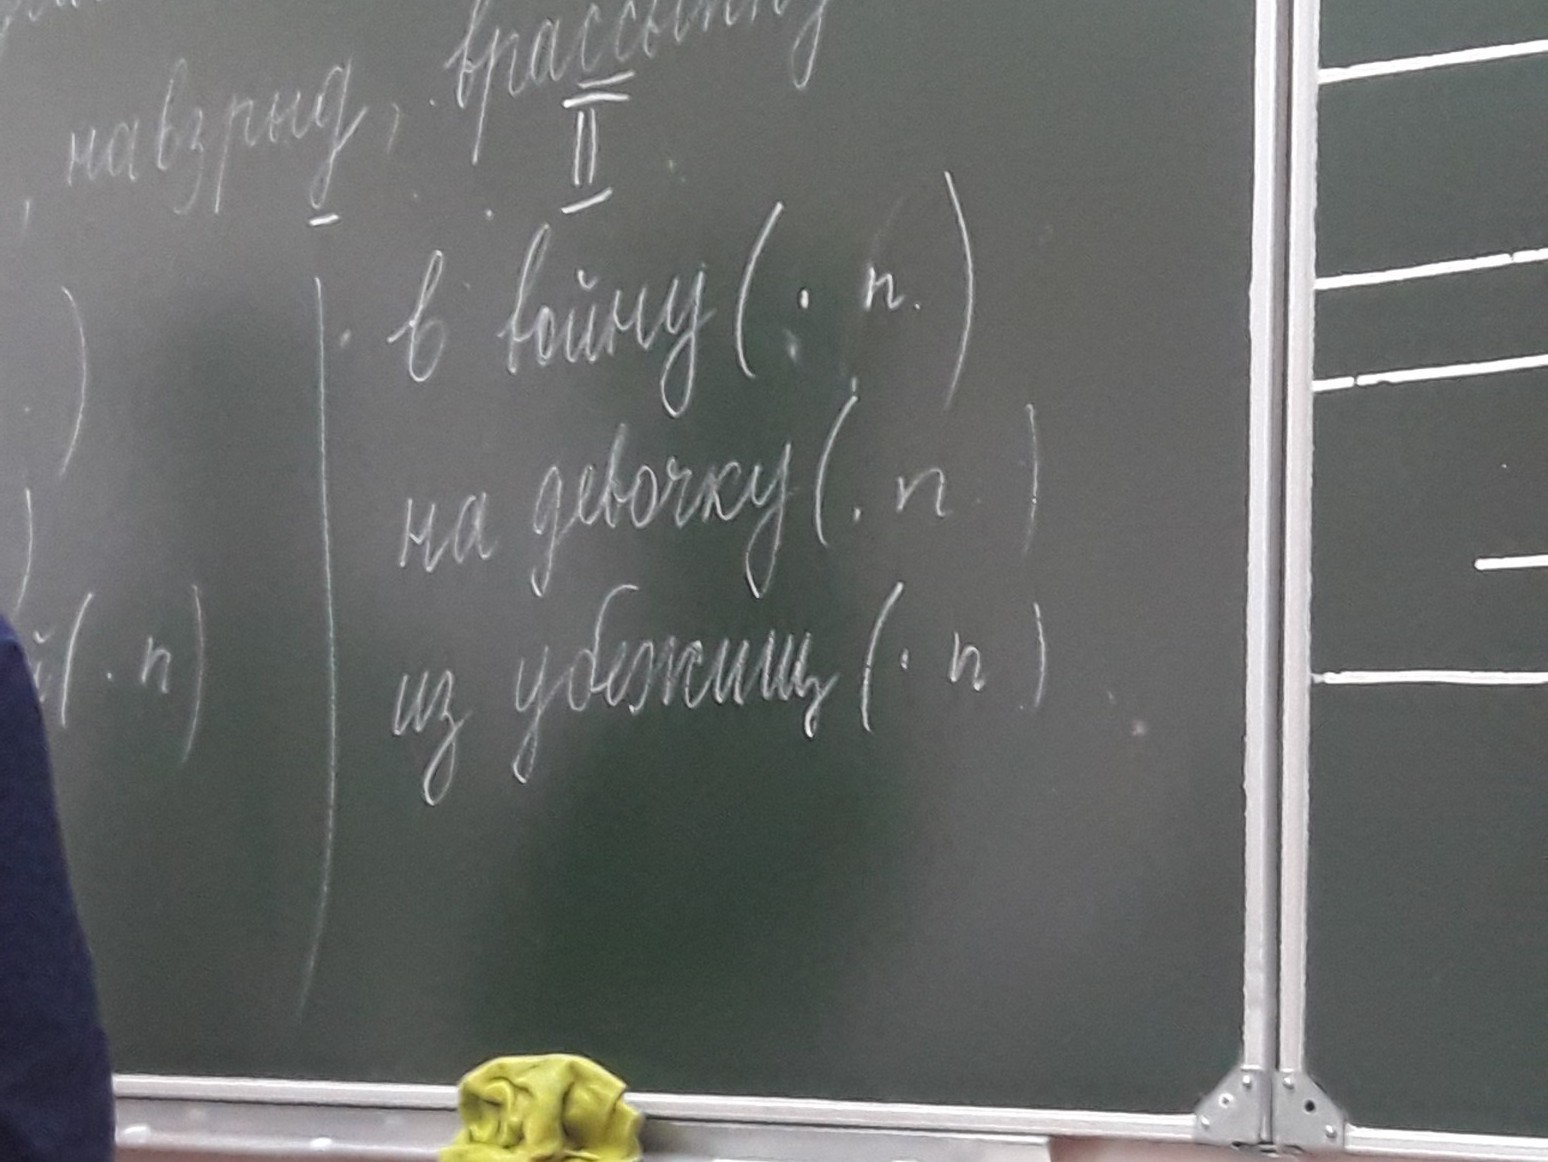 , навзрыд, врассыпну
II
в войну (. п.)
)
на девочку (. п.)
)
й (. п) из убежищ (. п)